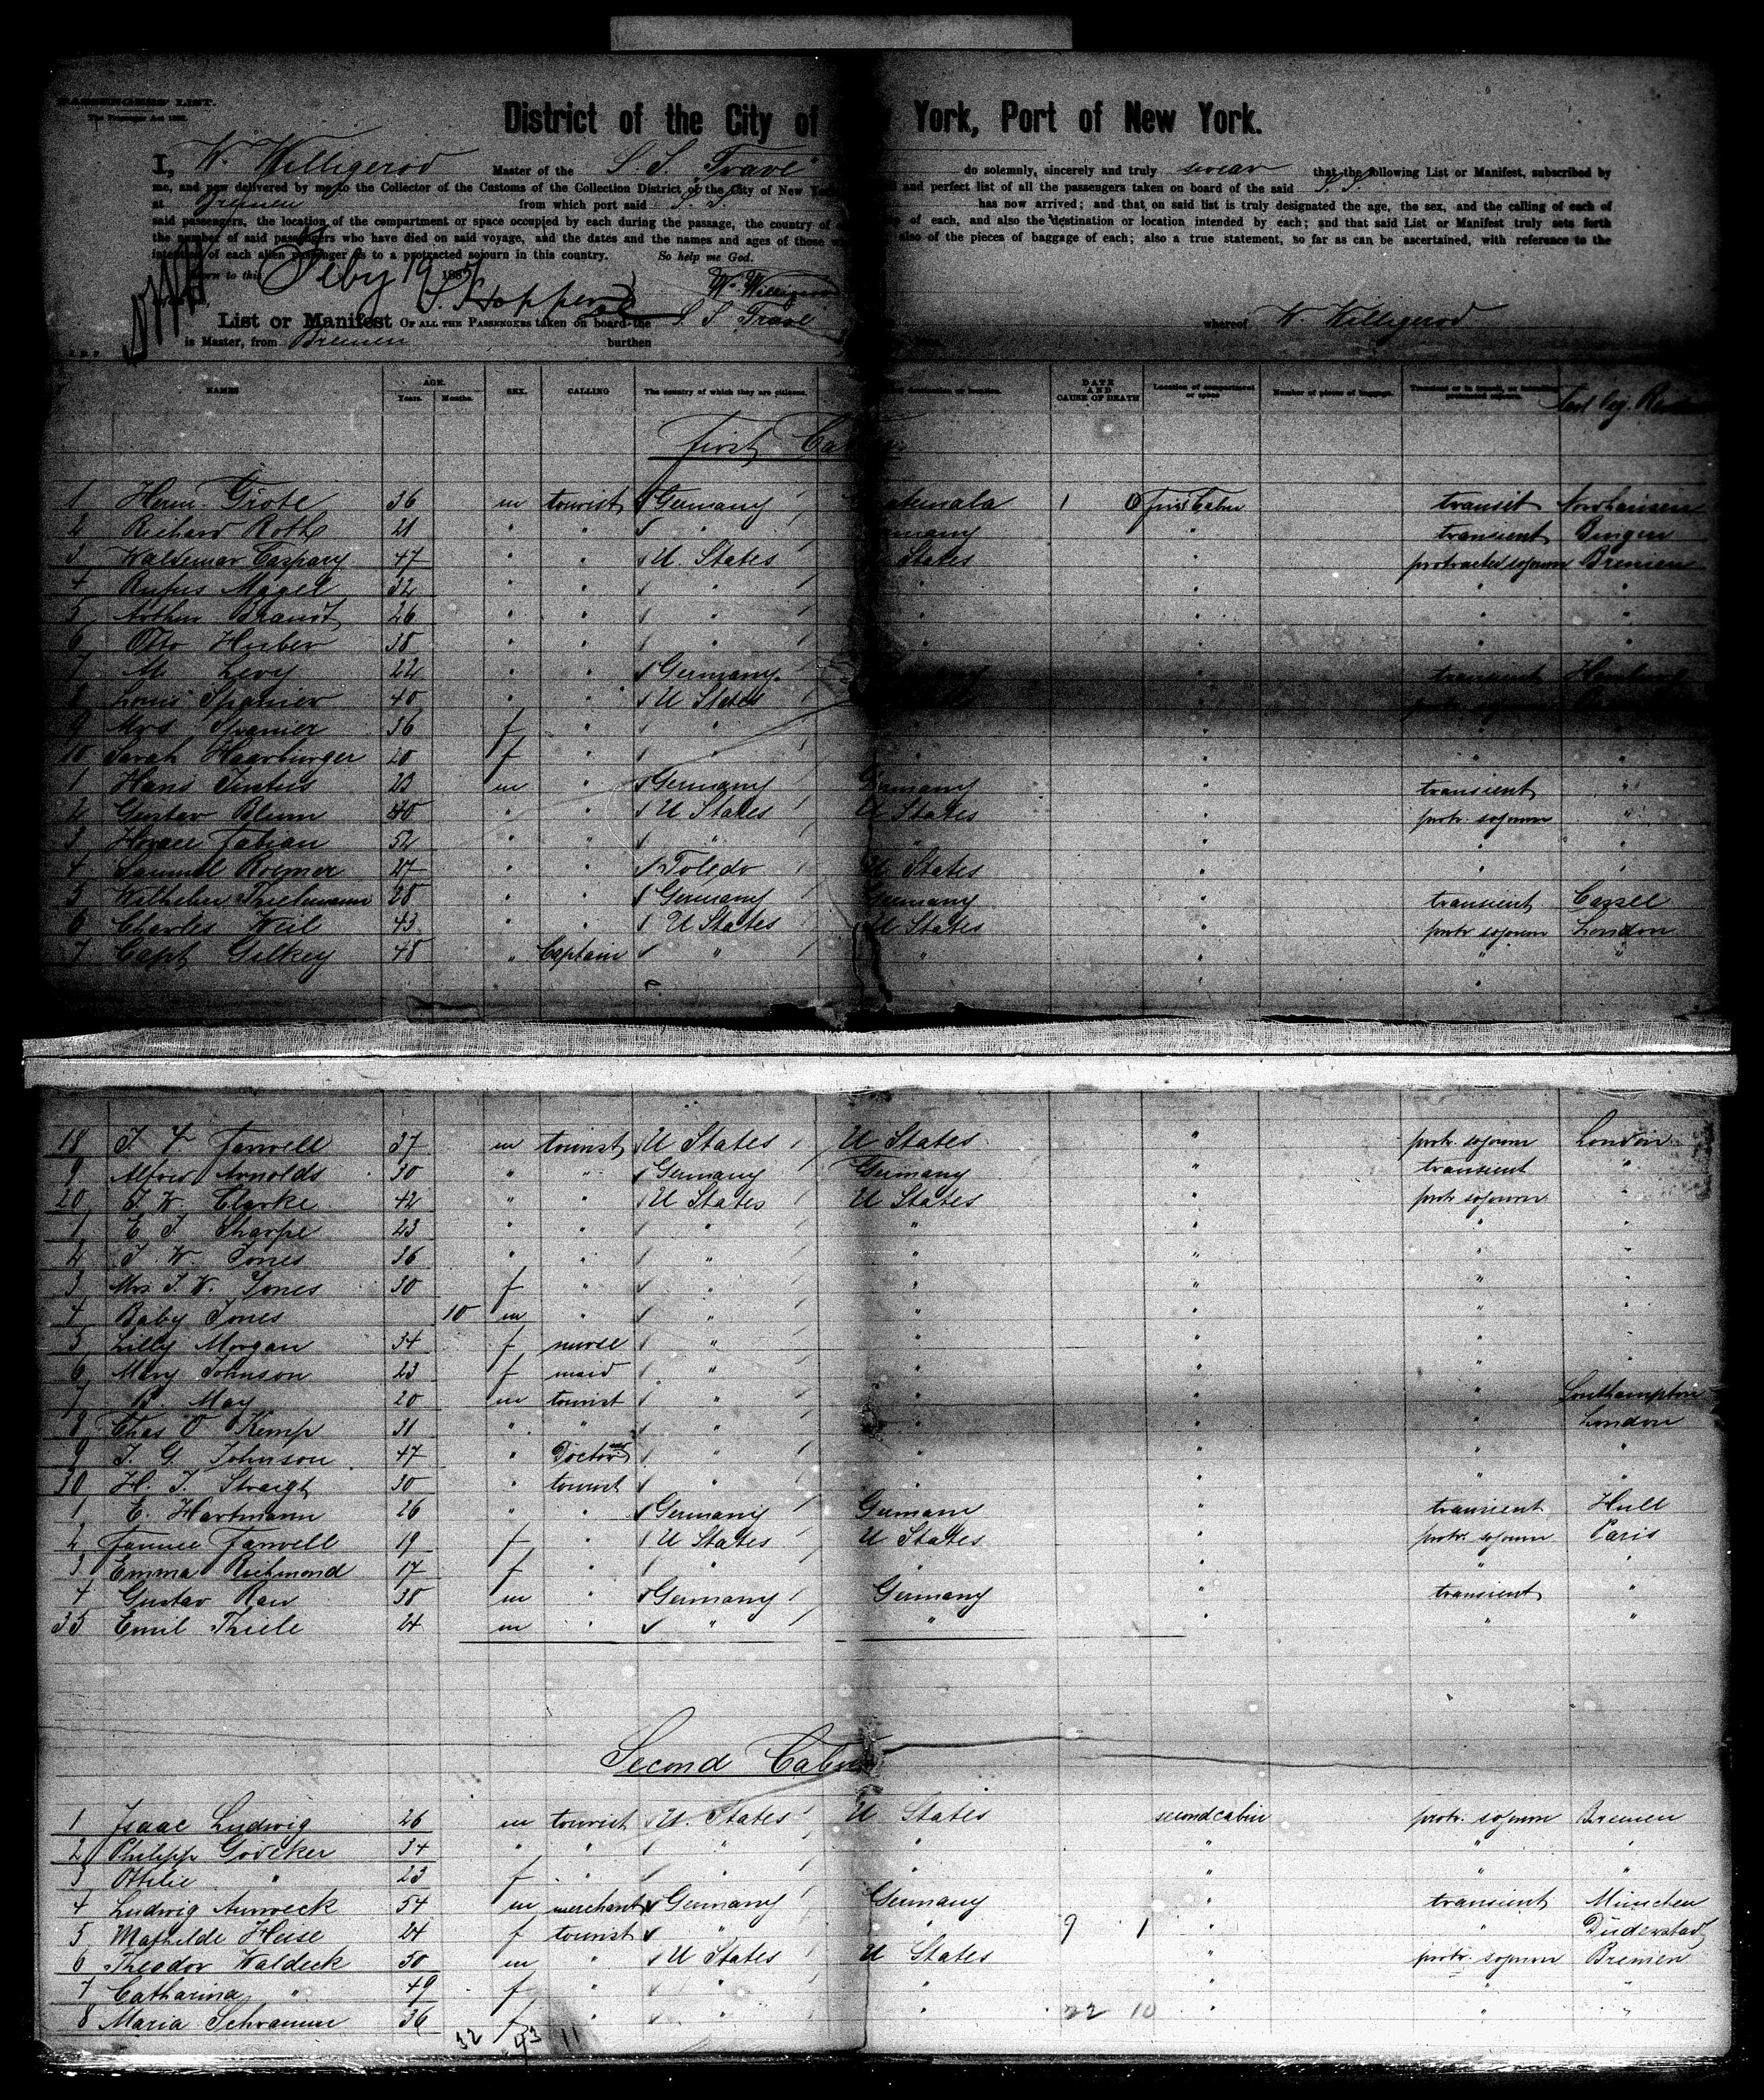 PASSENGERS' LIST.
The Passenger Act 1882.
District of the City of York, Port of New York.
I, W. Willigerod Master of the S. S. "Trave" do solemnly, sincerely and truly swear that the following List or Manifest, subscribed by
me, and now delivered by me to the Collector of the Customs of the Collection District of the City of New and perfect list of all the passengers taken on board of the said S. S.
at Bremen from which port said S. S. has now arrived; and that on said list is truly designated the age, the sex, and the calling of each of
said passengers, the location of the compartment or space occupied by each during the passage, the country of of each, and also the destination or location intended by each; and that said List or Manifest truly sets forth
the number of said passengers who have died on said voyage, and the dates and the names and ages of those also of the pieces of baggage of each; also a true statement, so far as can be ascertained, with reference to the
intention of each alien passenger as to a protracted sojourn in this country. So help me God.
to this Feby 19 188 W. Willigerod
List or Manifest OF ALL THE PASSENGERS taken on board the S. S. Trave whereof W Willigerod
is Master, from Bremen burthen
NAMES AGE. Years. Months. SEX. CALLING The country of which they are citizens. destination or location. DATE AND CAUSE OF DEATH Location of compartment or space Number of pieces of baggage. Transient or in transit, or intending protracted sojourn.
First
1 Herm. Grote 36 m tourist Germany 1 0 first Cabin transit Nordhausen
2 Richard Roth 21 " " " transient Bingen
3 Waldemar Caspary 47 " " U. States States " protracted sojourn Bremen
4 Rufus Magel 32 " " " " " " "
5 Arthur Brandt 26 " " " " " " "
6 Otto Huber 38 " " " " " " "
7 M. Levy 22 " " Germany " transient Hamburg
8 Louis Spanier 40 " " U States "
9 Mrs Spanier 36 f " " " " "
10 Sarah Haarburger 20 f " " " " " "
1 Hans 23 m " Germany Germany " transient "
2 Gustav Blum 40 " " U States U States " protr. sojourn "
3 Horace Fabian 52 " " " " " " "
4 Samuel Roemer 27 " " Toledo U States " " "
5 Wilhelm Thielemann 28 " " Germany Germany " transient Cassel
6 Charles Weil 43 " " U States U States " protr sojourn London
7 Capt Gilkey 48 " Captain " " " " "
18 J. V. Farwell 37 m tourist U States U States " protr. sojourn London
9 Alfred Arnolds 30 " " Germany Germany " transient "
20 J. W. Clarke 42 " " U States U States " protr sojourn "
1 E J. Sharpe 23 " " " " " " "
2 J. W. Jones 36 " " " " " " "
3 Mrs J. W. Jones 30 f " " " " " "
4 Baby Jones 10 m " " " " " "
5 Lilly Morgan 34 f nurse " " " " "
6 Mary Johnson 23 f maid " " " " "
7 B. May 20 m tourist " " " " Southampton
8 Chas O Kemp 31 " " " " " " London
9 J. G. Johnson 47 " Doctor " " " " "
30 H. J. Straight 30 " tourist " " " " "
1 E. Hartmann 26 " " Germany Germany " transient Hull
2 Fannie Farwell 19 f " U States U States " protr. sojourn Paris
3 Emma Richmond 17 f " " " " " "
4 Gustav Rau 38 m " Germany Germany " transient "
35 Emil Thiele 24 m " " " " " "
Second Cabin
1 Isaac Ludwig 26 m tourist U. States U States second cabin protr. sojourn Bremen
2 Philipp Gödeker 34 " " " " " " "
3 Ottilie " 23 f " " " " " "
4 Ludwig 54 m merchant Germany Germany " transient München
5 Mathilde Heise 24 f tourist " " 9 1 " " Duderstadt
6 Theodor Waldeck 50 m " U States U States " protr. sojourn Bremen
7 Catharina " 49 f " " " " " "
8 Maria Schramm 36 f " " " 22 10 " " "
32 43 11